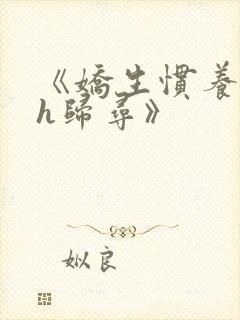 《嬌生慣養
h歸尋》
姒良